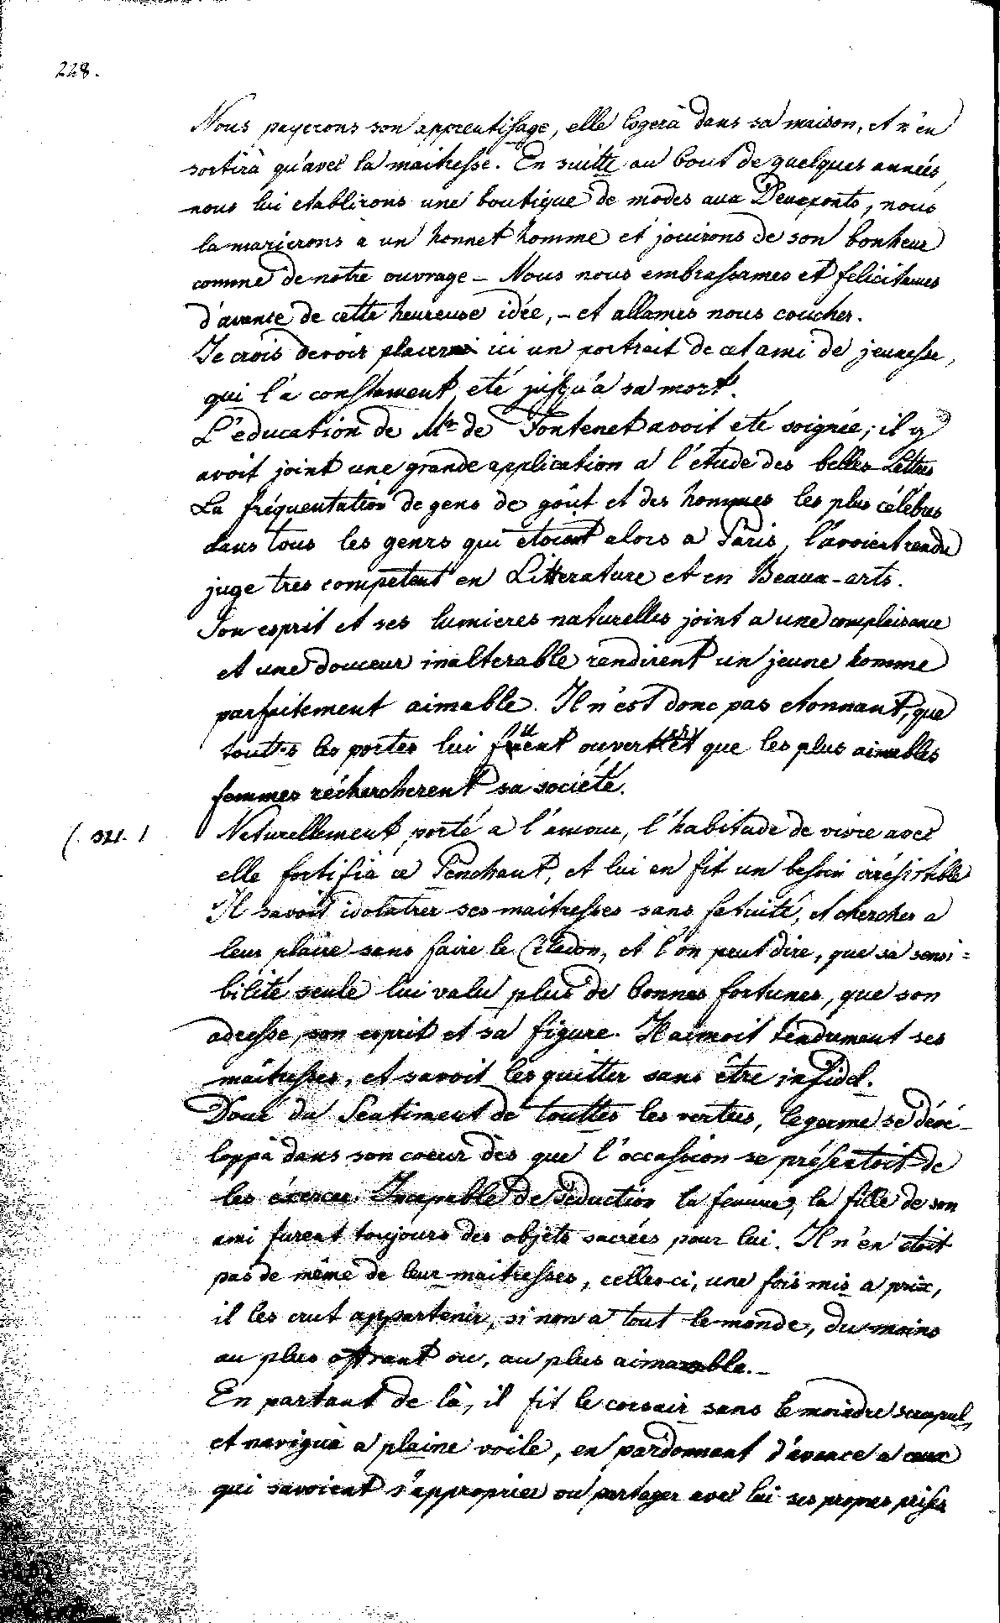 228.
Nous payerons son apprentissage, elle logerà dans sa maison, et n'en
sortirà qu'avec la maitresse. En suitte au bout de quelques années,
nous lui etablirons une boutique de modes aux Deuxponts, nous
la marierons à un honnet homme et jouirons de son bonheur
comme de notre ouvrage – Nous nous embrassames et felicitames
d'avance de cette heureuse idée, – et allames nous coucher.
Je crois devoir placer ici un portrait de cet ami de jeunesse,
qui l'a constament eté jusqu'à sa mort.
L'education de Mr. de Fontenet avoit eté soignée; il y
avoit joint une grande application a l'étude des belles-Lettres
La fréquentation de gens de goût et des hommes les plus célébres
dans tous les genrs qui etoient alors a Paris, l'avoient rendu
juge tres competent en Litterature et en Beaux-arts.
Son esprit et ses lumieres naturelles joint a une complaisance
et une douceur inalterable rendirent un jeune homme
parfaitement aimable. Il n'est donc pas etonnant, que
touts les portes lui furent ouvert et que les plus aimables
femmes réchercherent sa societé.
(. 321. ) Naturellement, porté a l'amour, l'habitude de vivre avec
elle fortifia ce Penchant, et lui en fit un besoin irrésistible
Il savoit idolatrer ses maitresses sans fatuité, et chercher a
leur plaire sans faire le Céladon, et l'on peut dire, que sa sensi=
bilité seule lui valu plus de bonnes fortunes, que son
adresse, son esprit et sa figure. Il aimoit tendrement ses
maitresses, et savoit les quitter sans être infidel.
Doué du Sentiment de touttes les vertus, le germe se déve-
loppà dans son coeur dès que l'occassion se présentoit de
les éxercer. Incapable de Séduction la femme, la fille de son
ami furent toujours des objets sacrées pour lui. Il n'en etoit
pas de même de leur maitresses, celles-ci, une fois mis a prix,
il les crut appartenir, si non a tout le monde, du moins
au plus offrant ou, au plus aimable. –
En partant de là, il fit le corsair sans le moindre scrupul,
et naviguà a plaine voile, en pardonnant d'avance a ceux
qui savoient s'approprier ou partager avec lui ses propres prises